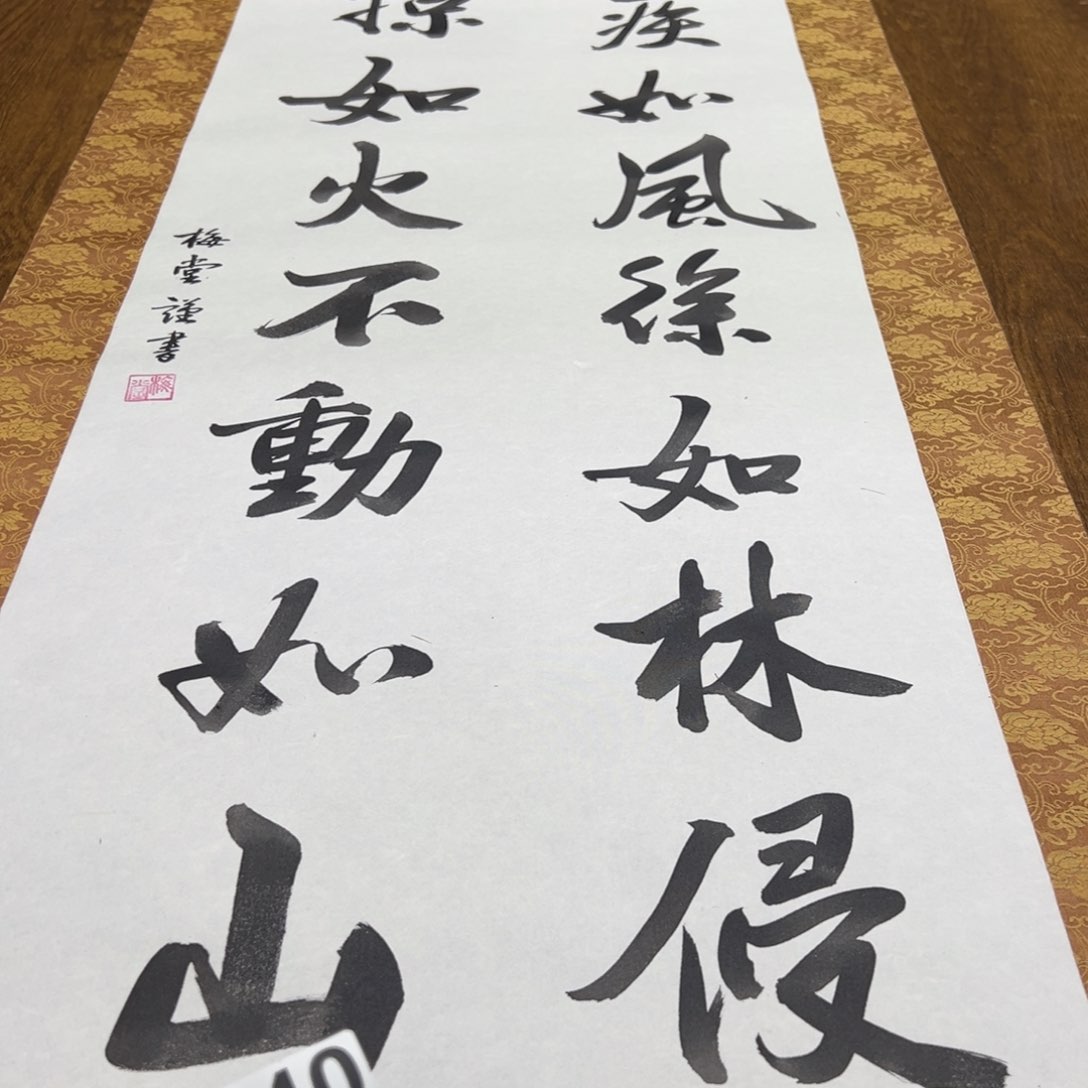 疾如風徐如林侵
掠如火不動如山
梅堂謹書